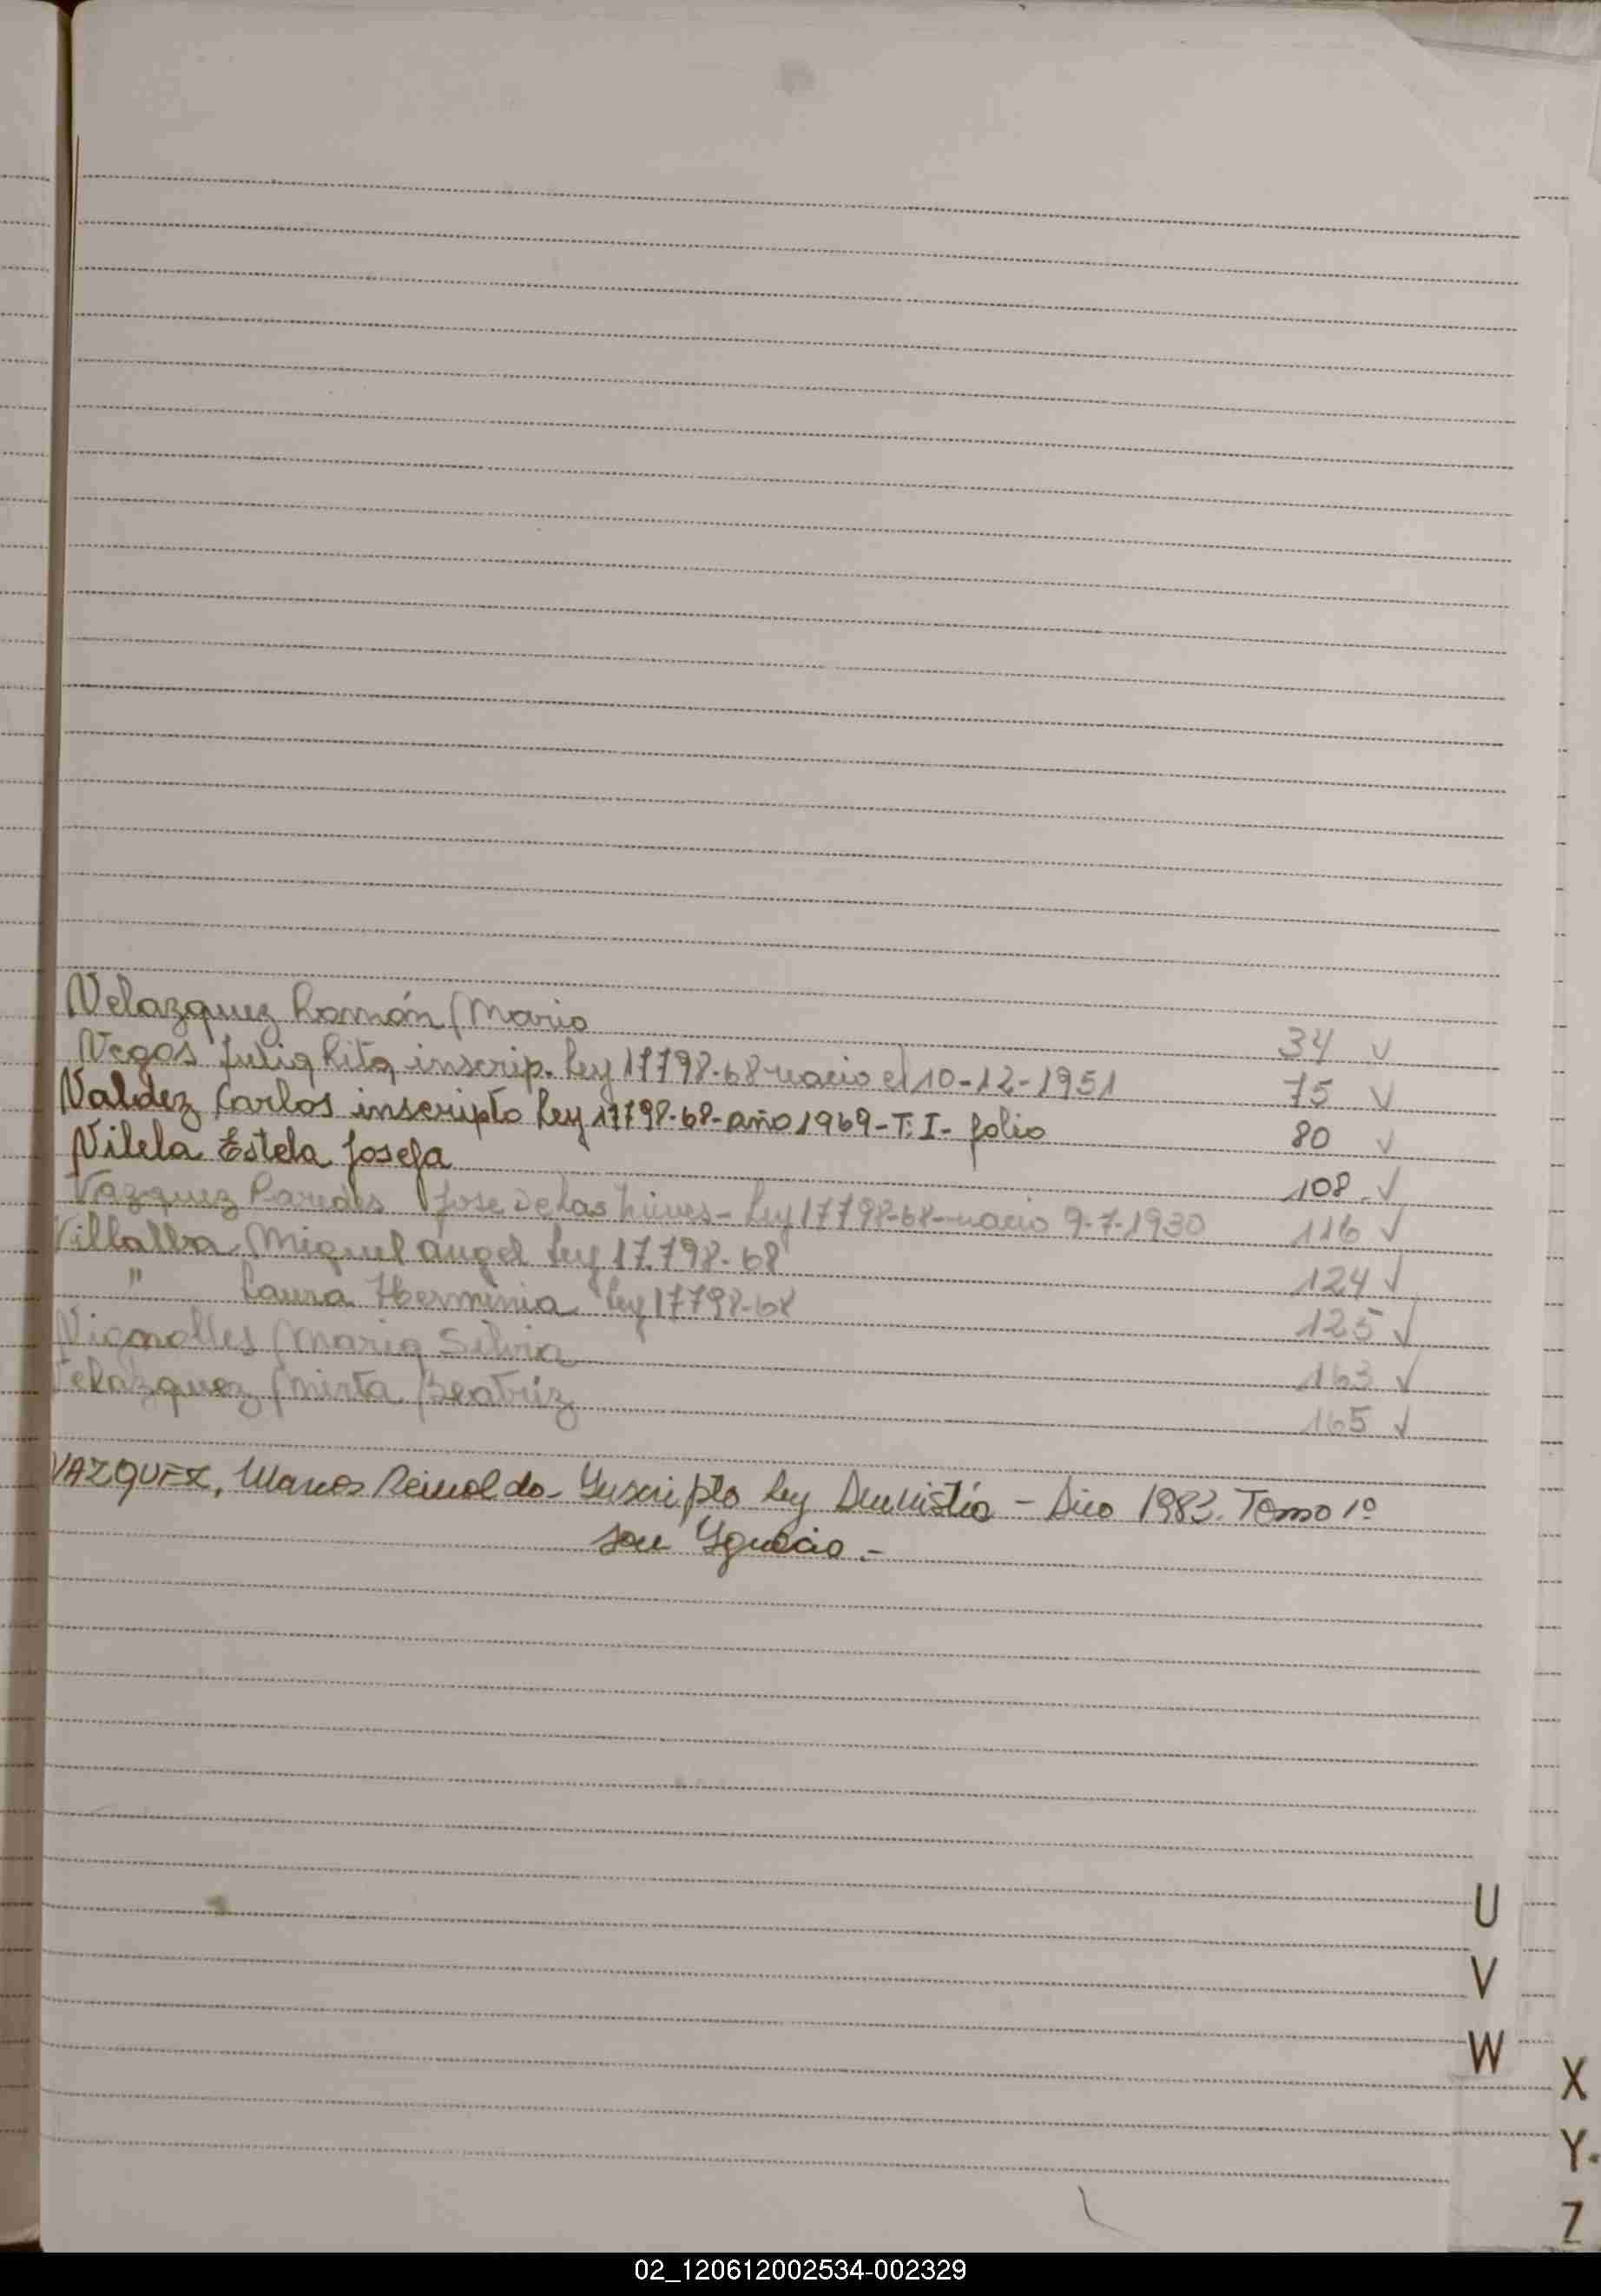 Velazquez Ramón Mario 34 v
Vegas Julia Rita inscrip. Ley 17798-68 nacio el 10-12-1951 75 v
Valdez Carlos inscripto Ley 17798-68-año 1969-T. I- folio 80 v
Vilela Estela Josefa 108 - √
Vazquez Paredes Jose De las Nieves - Ley 17798-68-nacio 9-7-1930 116 √
Villalba Miguel angel Ley 17.798-68 124 √
" Laura Herminia Ley 17798-68 125 √
Vignolles Maria Silvia 163 √
Velazquez Mirta Beatriz 165 √
VAZQUEZ, Marcos Reinoldo - Inscripto Ley Amnistía - Año 1983. Tomo 1º
San Ignacio.-
U
V
W
X
Y
Z
02_120612002534-002329